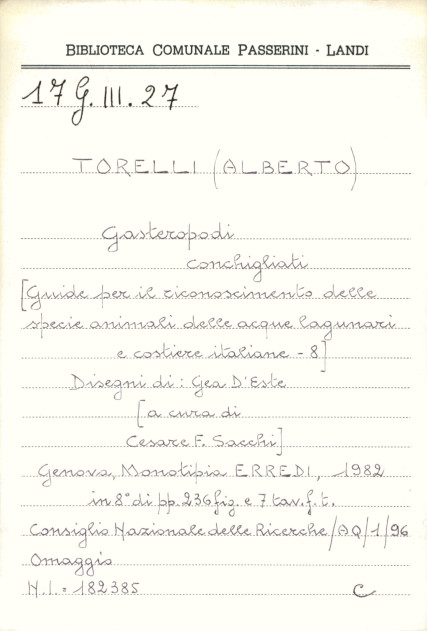 BIBLIOTECA COMUNALE PASSERINI - LANDI
17 G. III. 27
TORELLI (ALBERTO)
Gasteropodi
conchigliati
[Guide per il riconoscimento delle
specie animali delle acque lagunari
e costiere italiane - 8]
Disegni di: Gea D'Este
[a cura di
Cesare F. Sacchi]
Genova, Monotipia ERREDI, 1982
in 8° di pp. 236 fig. e 7 tav. f. t.
Consiglio Nazionale delle Ricerche/AQ/1/96
Omaggio
N.I. = 182385 C